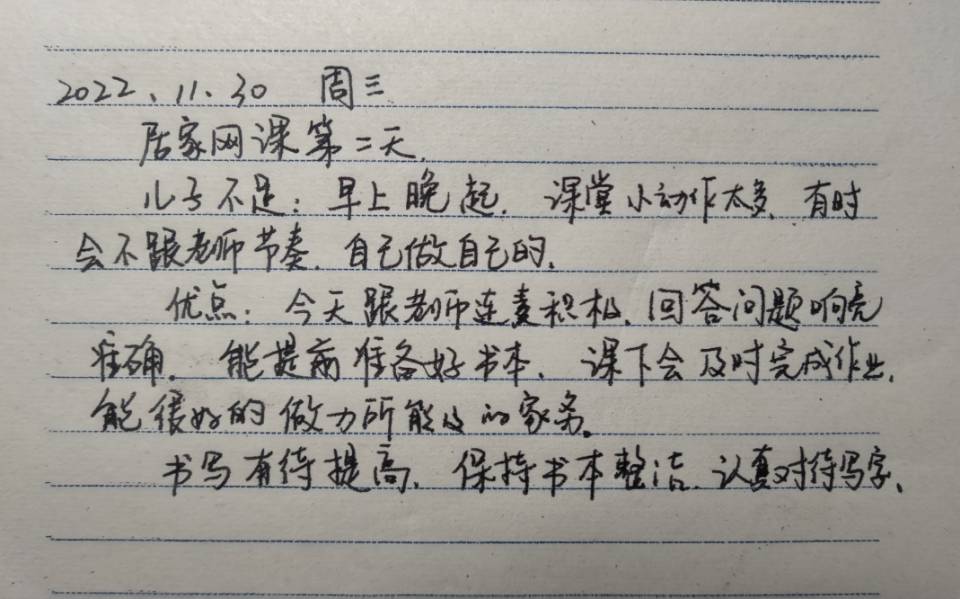 2022、11、30 周三
居家网课第二天.
儿子不足：早上晚起. 课堂小动作太多、有时
会不跟老师节奏. 自己做自己的.
优点：今天跟老师连麦积极、回答问题响亮
准确. 能提前准备好书本、课下会及时完成作业.
能很好的做力所能及的家务。
书写有待提高. 保持书本整洁. 认真对待写字、